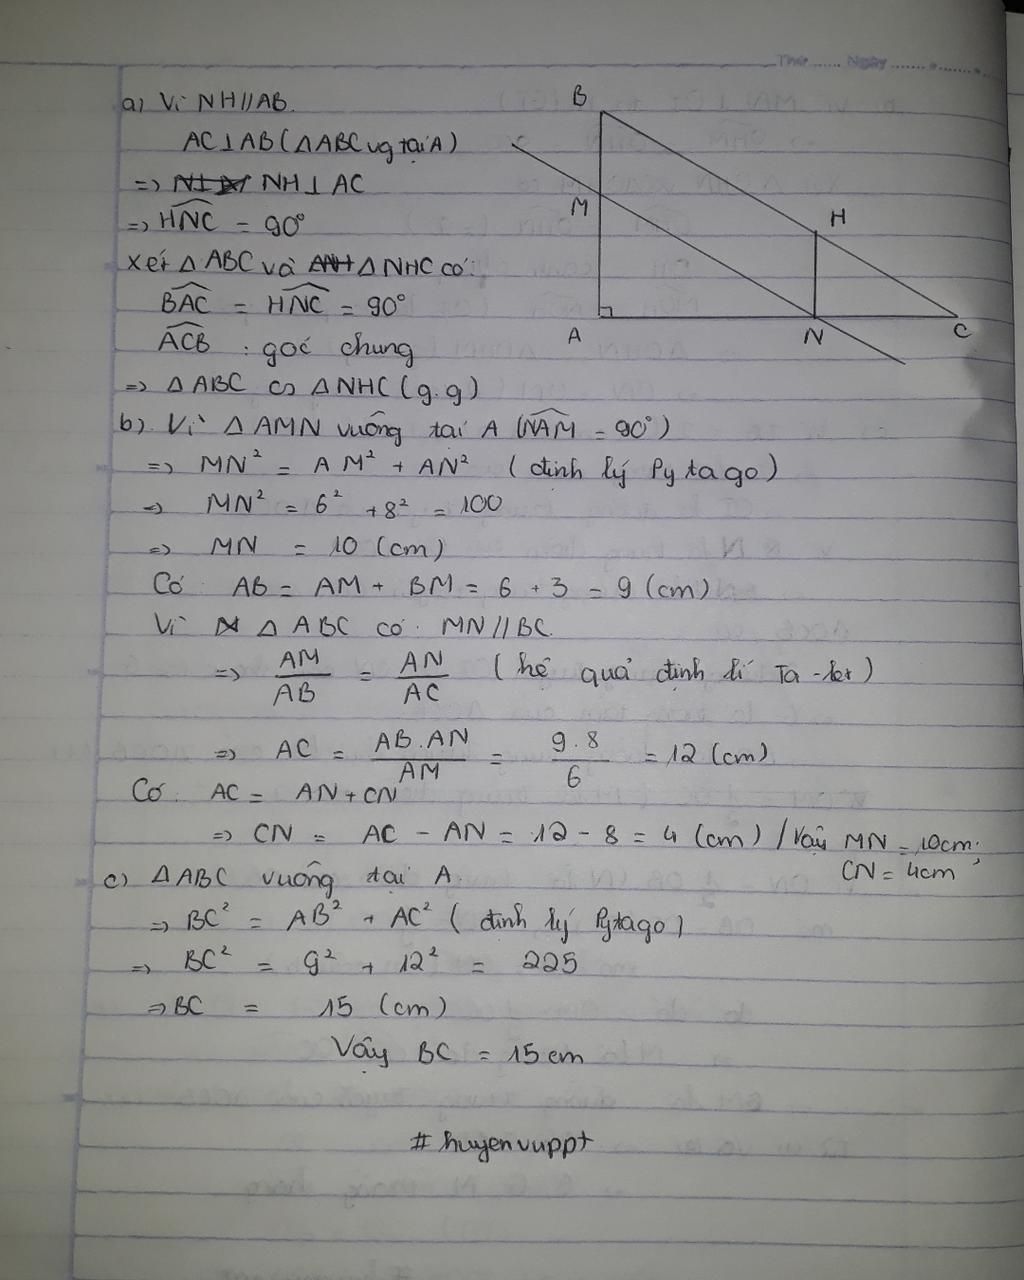 Thứ ...... Ngày ...............
a) Vì NH//AB.
AC⊥AB (ΔABC vg tại A)
=> NH⊥ AC
=> HNC = 90°
Xét ΔABC và ΔNHC có:
BAC = HNC = 90°
ACB : góc chung
=> ΔABC ∽ ΔNHC (g.g)
B
M
H
A
N
C
b) Vì ΔAMN vuông tại A (NAM = 90°)
=> MN² = AM² + AN² (định lý Pytago)
=> MN² = 6² + 8² = 100
=> MN = 10 (cm)
Có AB = AM + BM = 6 + 3 = 9 (cm)
Vì ΔABC có MN//BC.
=> AM/AB = AN/AC (hệ quả định lí Ta-let)
=> AC = AB.AN/AM = 9.8/6 = 12 (cm)
Có AC = AN + CN
=> CN = AC - AN = 12 - 8 = 4 (cm) / Vậy MN = 10cm;
CN = 4cm
c) ΔABC vuông tại A
=> BC² = AB² + AC² (định lý Pytago)
=> BC² = 9² + 12² = 225
=> BC = 15 (cm)
Vậy BC = 15 cm
# huyenvuppt